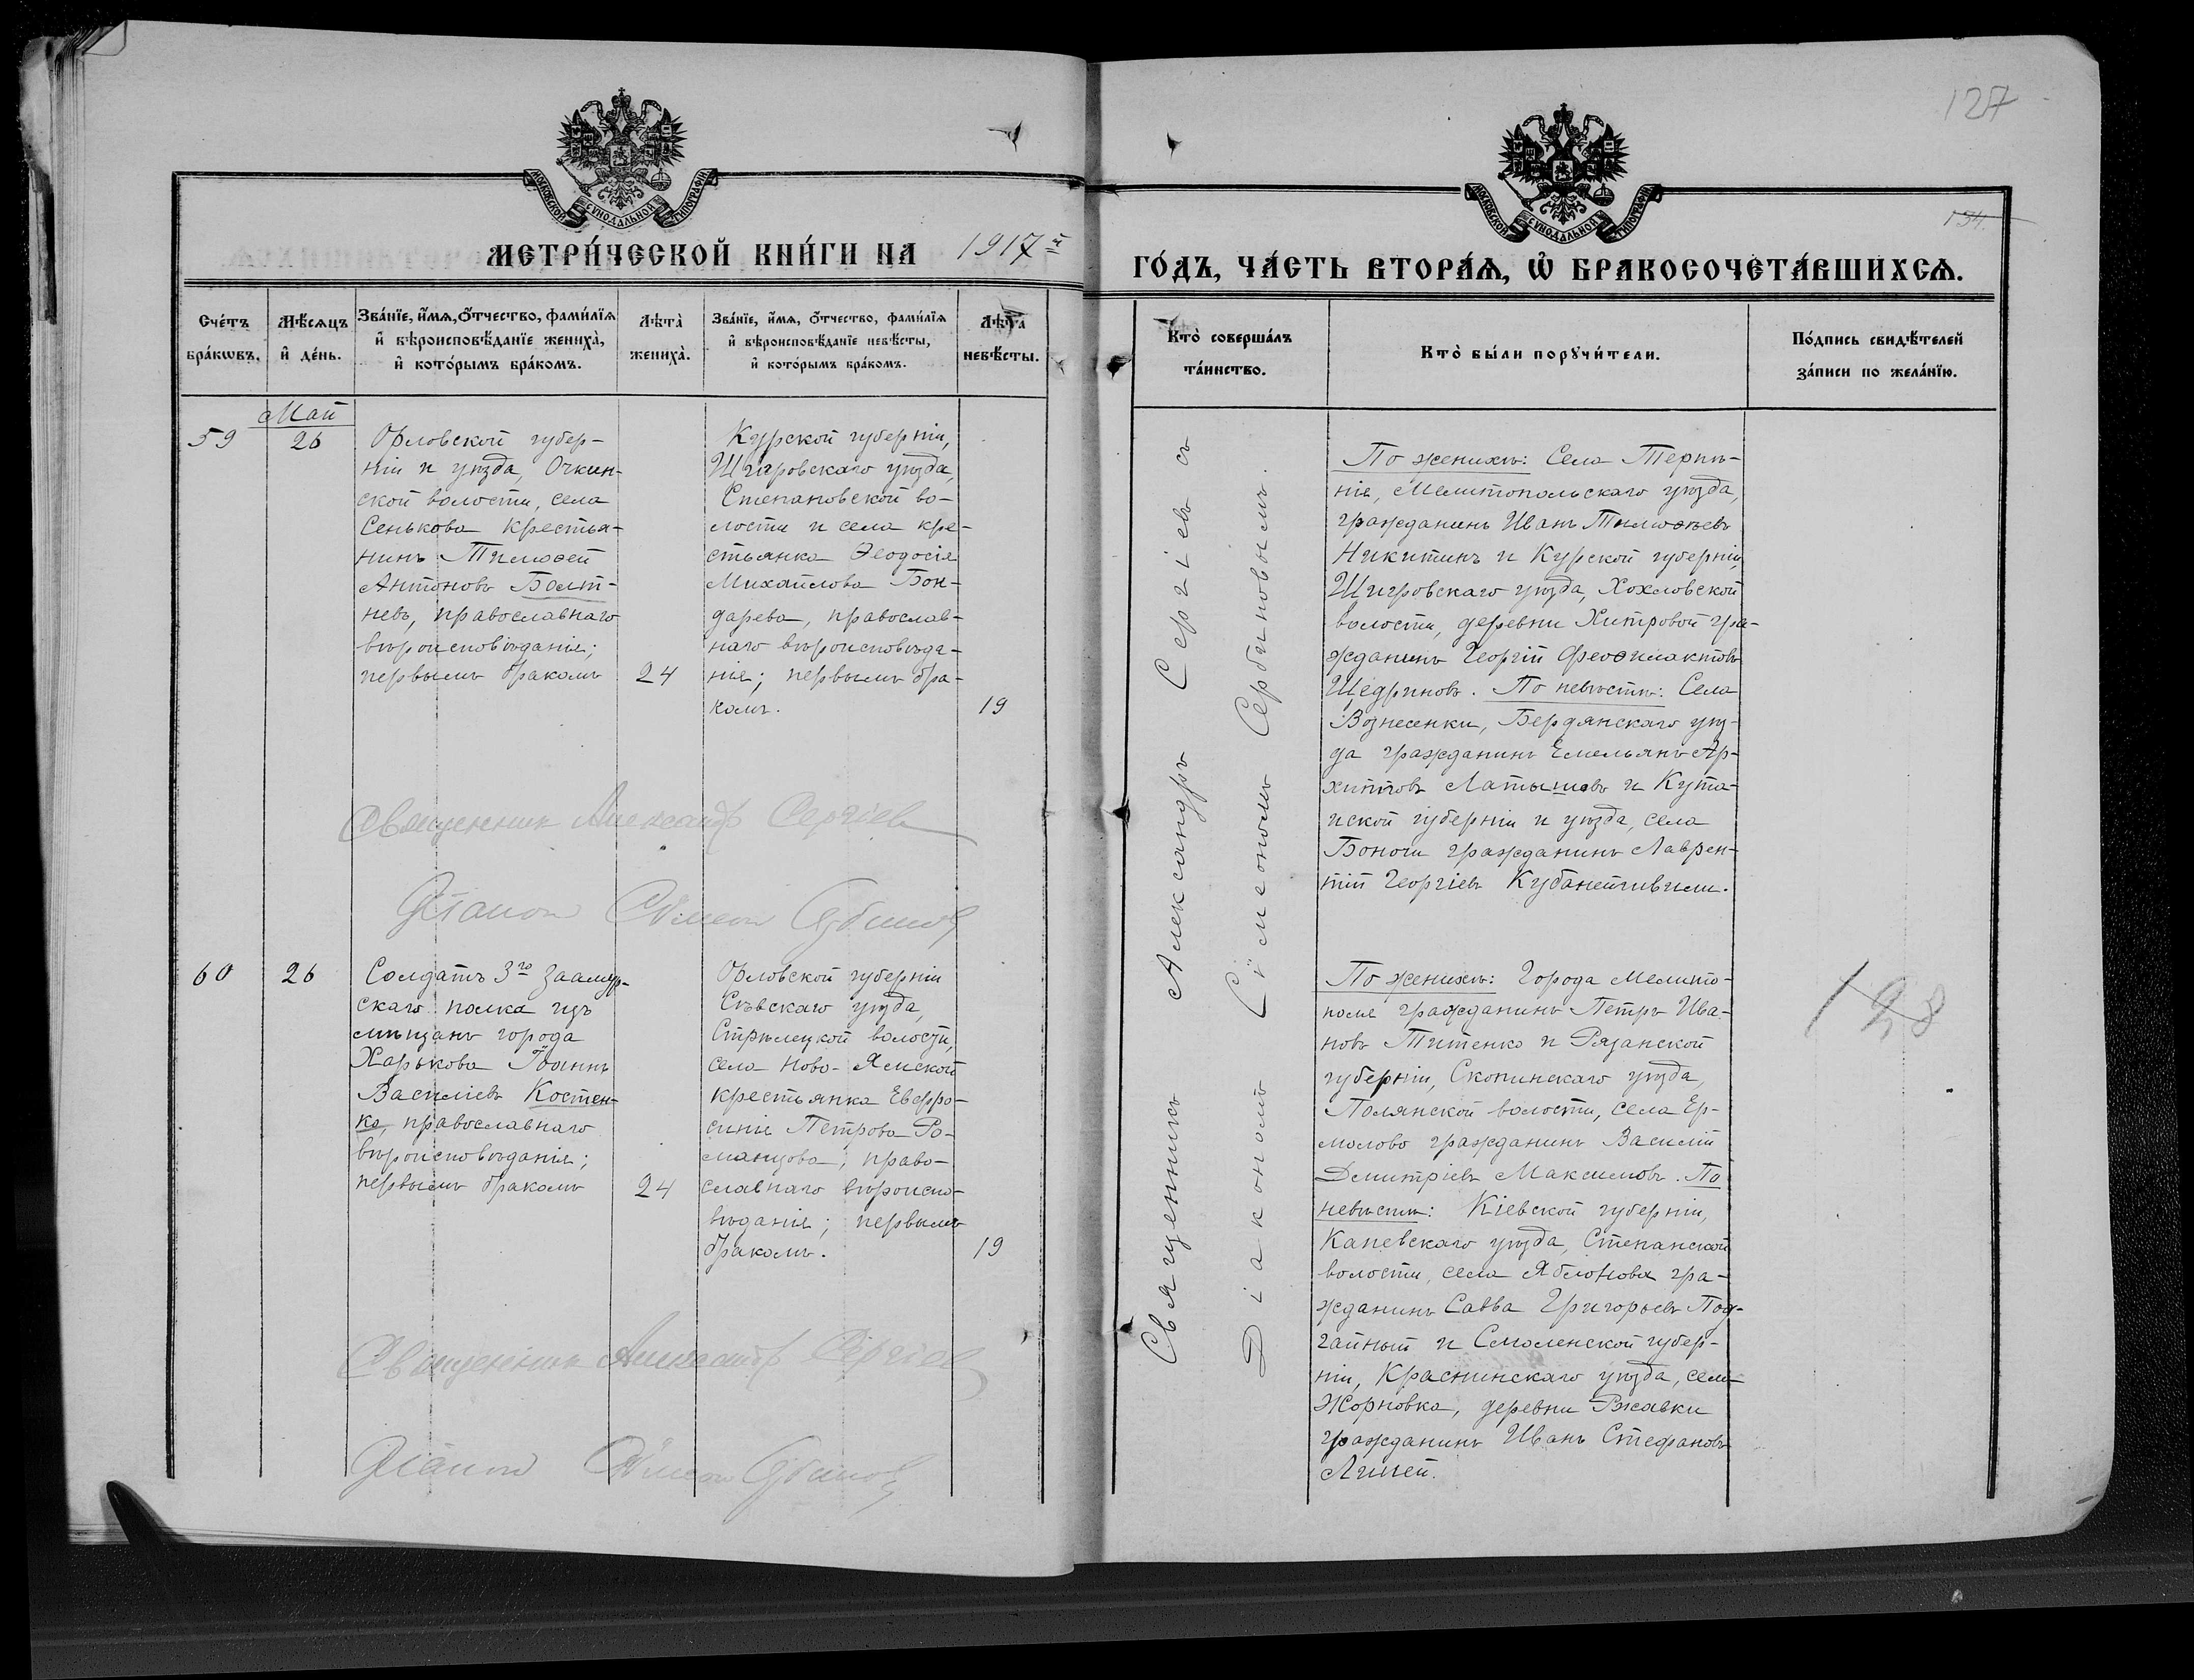 127
134
МОСКОВСКОЙ СѴНОДАЛЬНОЙ ТИПОГРАФІИ
МЕТРИ́ЧЕСКОЙ КНИ́ГИ НА 1917й
МОСКОВСКОЙ СѴНОДАЛЬНОЙ ТИПОГРАФІИ
ГО́ДЪ, ЧА́СТЬ ВТОРА́Ѧ, Ѡ҆ БРАКОСОЧЕТА́ВШИХСѦ.
Сче́тъ
бра́кѡвъ.
Мѣ́сяцъ
и҆ де́нь.
Зва́нїе, и҆́мѧ, ѻ҆́тчество, фами́лїѧ
и҆ вѣроисповѣ́данїе жениха̀,
и҆ кото́рымъ бра́комъ.
Лѣта̀
жениха̀.
Зва́нїе, и҆́мѧ, ѻ҆́тчество, фами́лїѧ
и҆ вѣроисповѣ́данїе невѣ́сты,
и҆ кото́рымъ бра́комъ.
Лѣта̀
невѣ́сты.
Кто̀ соверша́лъ
та́инство.
Кто̀ бы́ли порꙋчи́тели.
По́дпись свидѣ́телей
за́писи по жела́нїю.
Май
59
26
Орловской губер-
ніи и уѣзда, Очкин-
ской волости, села
Сенькова крестья-
нинъ Тимоѳей
Антоновъ Болт-
невъ, православнаго
вѣроисповѣданія;
первымъ бракомъ
24
Курской губерніи,
Щигровскаго уѣзда,
Степановской во-
лости и села кре-
стьянка Ѳеодосія
Михайлова Бон-
дарева, православ-
наго вѣроисповѣда-
нія; первымъ бра-
комъ.
19
Священникъ Александръ Сергіевъ съ
Діакономъ Сѵмеономъ Сербиновымъ.
По женихѣ: Села Терпѣ-
нія, Мелитопольскаго уѣзда,
гражданинъ Иванъ Тимоѳеевъ
Никитинъ и Курской губерніи,
Щигровскаго уѣзда, Хохловской
волости, деревни Хитровой гра-
жданинъ Георгій Феофилактовъ
Щедриновъ. По невѣстѣ: Села
Вознесенки, Бердянскаго уѣз-
да гражданинъ Емельянъ Ар-
хиповъ Латышовъ и Кута-
иской губерніи и уѣзда, села
Боноги гражданинъ Лаврен-
тій Георгіевъ Кубанейшвили.
Священник Александр Сергіев
Діакон Сѵмеон Сербинов
60
26
Солдатъ 3го Заамур-
скаго полка изъ
мѣщанъ города
Харькова Іоаннъ
Василіевъ Костен-
ко, православнаго
вѣроисповѣданія;
первымъ бракомъ
24
Орловской губерніи
Сѣвскаго уѣзда,
Стрѣлецкой волости,
села Ново-Ямской
крестьянка Евфро-
синія Петрова Ро-
манцова, право-
славнаго вѣроиспо-
вѣданія; первымъ
бракомъ.
19
По женихѣ: Города Мелито-
поля гражданинъ Петръ Ива-
новъ Титенко и Рязанской
губерніи, Скопинскаго уѣзда,
Полянской волости, села Ер-
молово гражданинъ Василій
Дмитріевъ Максимовъ. По
невѣстѣ: Кіевской губерніи,
Каневскаго уѣзда, Степанской
волости, села Яблонова гра-
жданинъ Савва Григорьевъ Под-
гайный и Смоленской губер-
ніи, Краснинскаго уѣзда, села
Жорновка, деревни Ржавки
гражданинъ Иванъ Стефановъ
Священник Александр Сергіев
Діакон Сѵмеон Сербинов